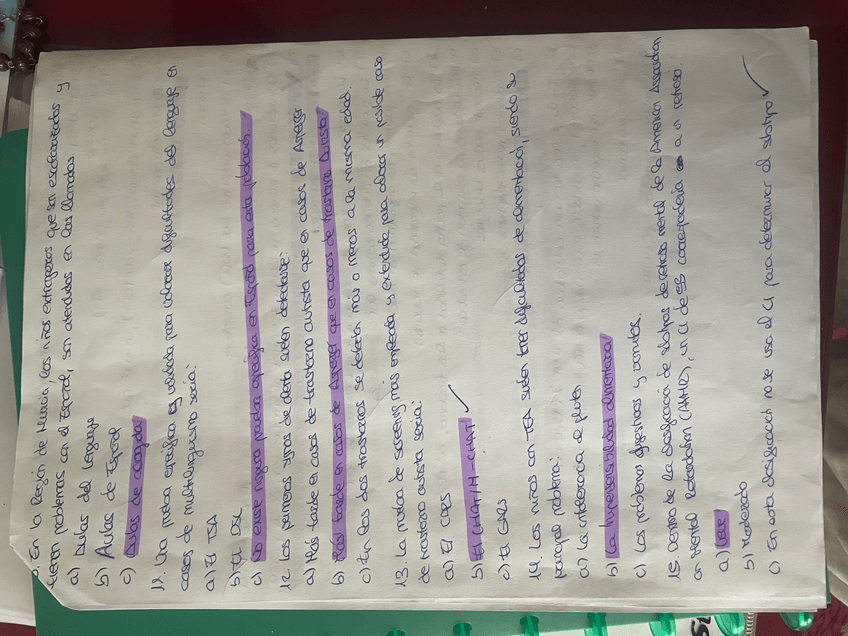 . En la Región de Murcia, los niños extranjeros que son escolarizados y
tienen problemas con el Español, son atendidos en las llamadas.
a) Aulas del lenguaje
b) Aulas de Español
c) Aulas de acogida
11. Una prueba específica y validada para valorar dificultades del lenguaje en
casos de multilingüismo sería:
a) El TSA
b) El DSL
c) No existe ninguna prueba específica en España para esta población.
12. Los primeros signos de alerta suelen detectarse:
a) Más tarde en casos de trastorno autista que en casos de Asperger
b) Más tarde en casos de Asperger que en casos de trastorno Autista
c) En los dos trastornos se detectan más o menos a la misma edad.
13. La prueba de screening más empleada y extendida para valorar un posible caso
de trastorno autista sería:
a) El CARS
b) El CHAT/M-CHAT
c) El GARS
14. Los niños con TEA suelen tener dificultades de alimentación, siendo su
principal problema:
a) La intolerancia al gluten
b) La hipersensibilidad alimentaria
c) Los problemas digestivos y vómitos.
15. Dentro de la clasificación de subtipos de retraso mental de la American Association
on Mental Retardation (AAMR), un CI de 55 correspondería a un retraso
a) Leve
b) Moderado
c) En esta clasificación no se usa el CI para determinar el subtipo